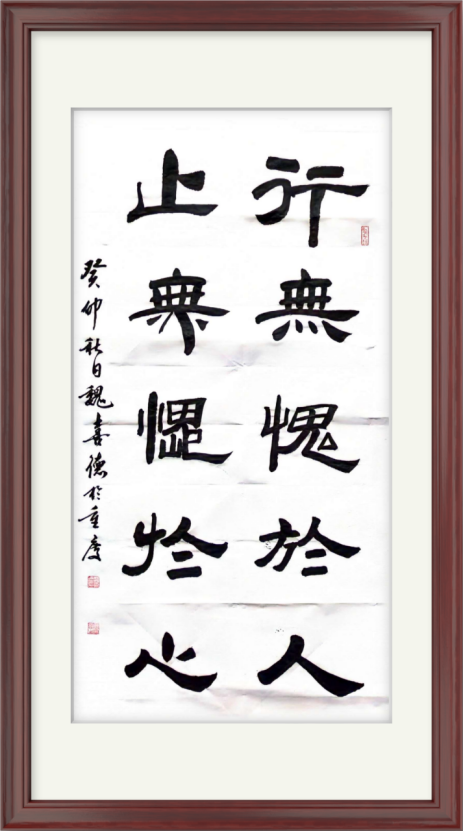 行無愧於人
止無愧於心
癸卯秋日魏喜德於重慶